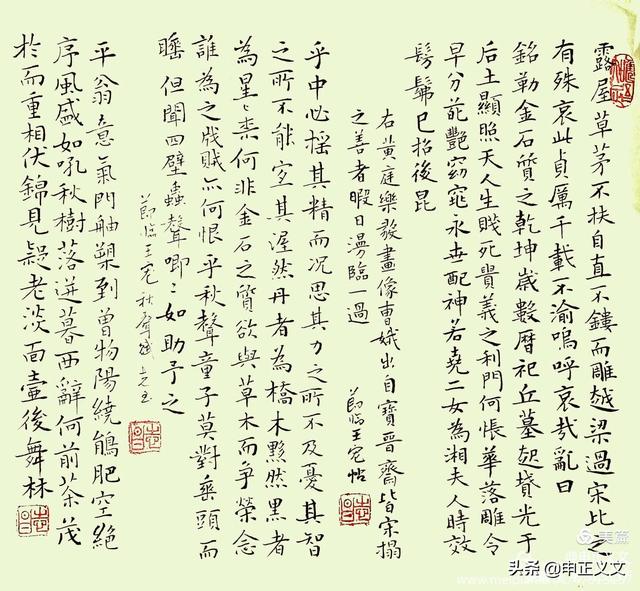 露屋草茅不扶自直不鏤而雕越梁過宋比之
有殊哀此貞厲千載不渝嗚呼哀哉亂曰
銘勒金石質之乾坤歲數曆祀丘墓起墳光于
后土顯照天人生賤死貴義之利門何悵華落雕令
早分葩艷窈窕永世配神若堯二女為湘夫人時效
髣髴已招後昆
右黃庭樂毅畫像曹娥出自寶晉齋皆宋搨
之善者暇日漫臨一過
節臨王寵帖
乎中必搖其精而况思其力之所不及憂其智
之所不能宜其渥然丹者為槁木黟然黑者
為星〻柰何非金石之質欲與草木而爭榮念
誰為之戕賊亦何恨乎秋聲童子莫對垂頭而
睡但聞四壁蟲聲唧〻如助予之
節臨王寵秋聲賦
平翁意氣門舳槊到曾物陽繞肥空絕
序風盛如吼秋樹落迸暮西辭何前茶茂
於而重相伏錦見疑老淡面壺後舞林
美篇
头条 @申正义文